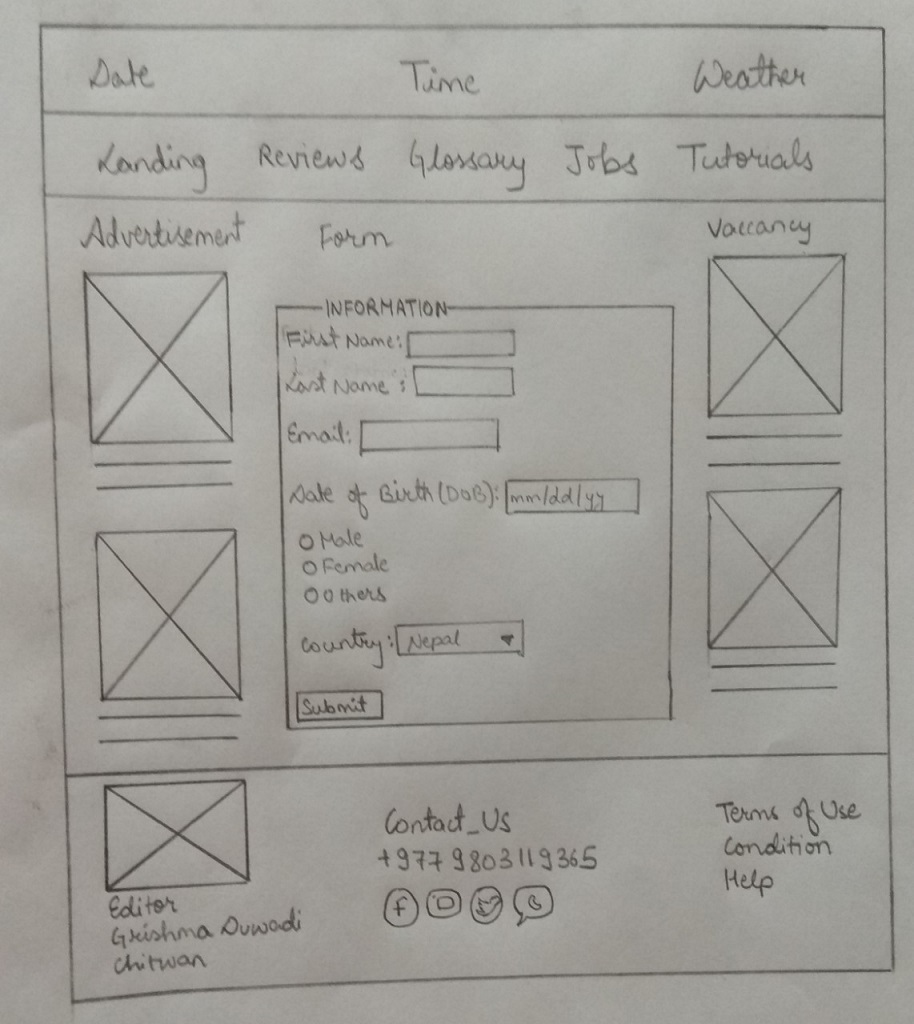 Date Time Weather
Landing Reviews Glossary Jobs Tutorials
Advertisement Form Vaccancy
INFORMATION
First Name:
Last Name :
Email:
Date of Birth (DOB): mm/dd/yy
Male
Female
Others
Country: Nepal
Submit
Editor
Grishma Duwadi
Chitwan
Contact_Us
+977 9803119365
Terms of Use
Condition
Help